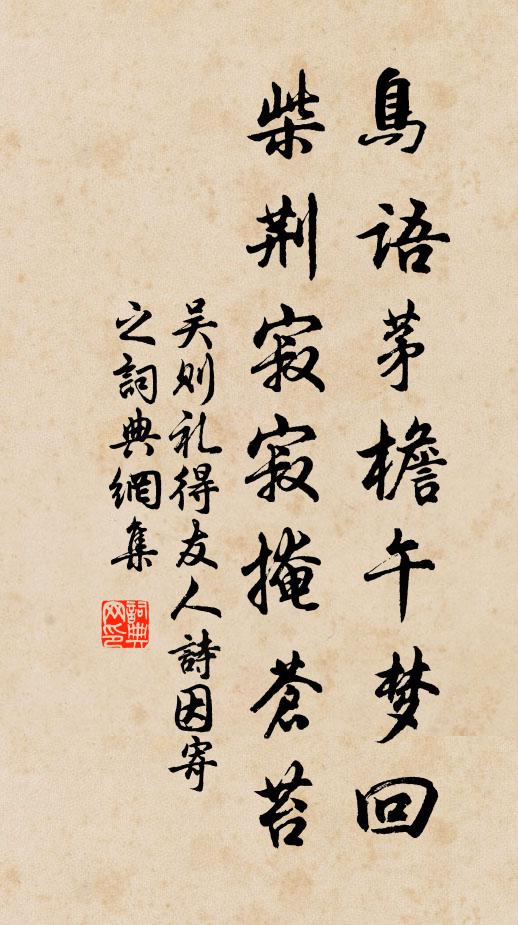 鳥語茅檐午梦回
柴荆寂寂掩蒼苔
吴则礼得友人詩因寄
之詞典網集
詞典网印